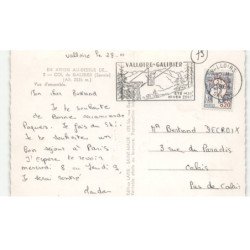 Valloire le 28
EN AVION AU-DESSUS DE...
2 — COL du GALIBIER (Savoie)
(Alt. 2556 m.)
Vue d'ensemble.
Mon cher Bertrand
Je te souhaite
de Bonne vacances de
Paques. Je fais du Ski.
Je te souhaite un
bon séjour à Paris
J'espère te revoir
mercredi 8 ou Jeudi 9.
Je serai rentré
VALLOIRE-GALIBIER
VALLOIRE
0,20
73
Mr Bertrand DECROIX
3 rue du Paradis
Calais
Pas de Calais